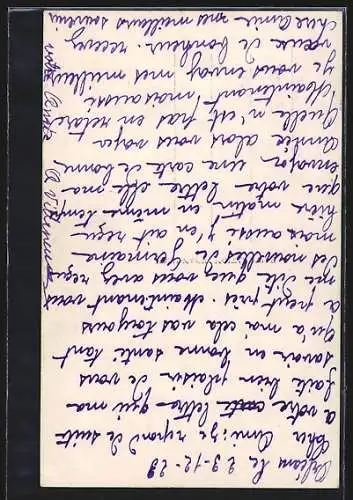 Orléans Le 23-12-29
Chère Amie je répond de suite
a votre lettre qui ma
faite bien plaisir de vous
savoir en bonne santé tant
qu'a moi cela vas toujours
a peut pré. Maintenant vous
me dite quez vous avez reçu
des nouvelles de Germaine
mois aussi j'en ait reçu
hière matin en même temp
que votre lettre elle ma
envoyer une carte de bonne
Année alors vous voyer
Quelle n'est pas en retare
Maintenant mois aussi
je vous envoy mes meilleur
vœux de bonheur. recevez
chère Amie mes meilleurs souvenir
votre Amie